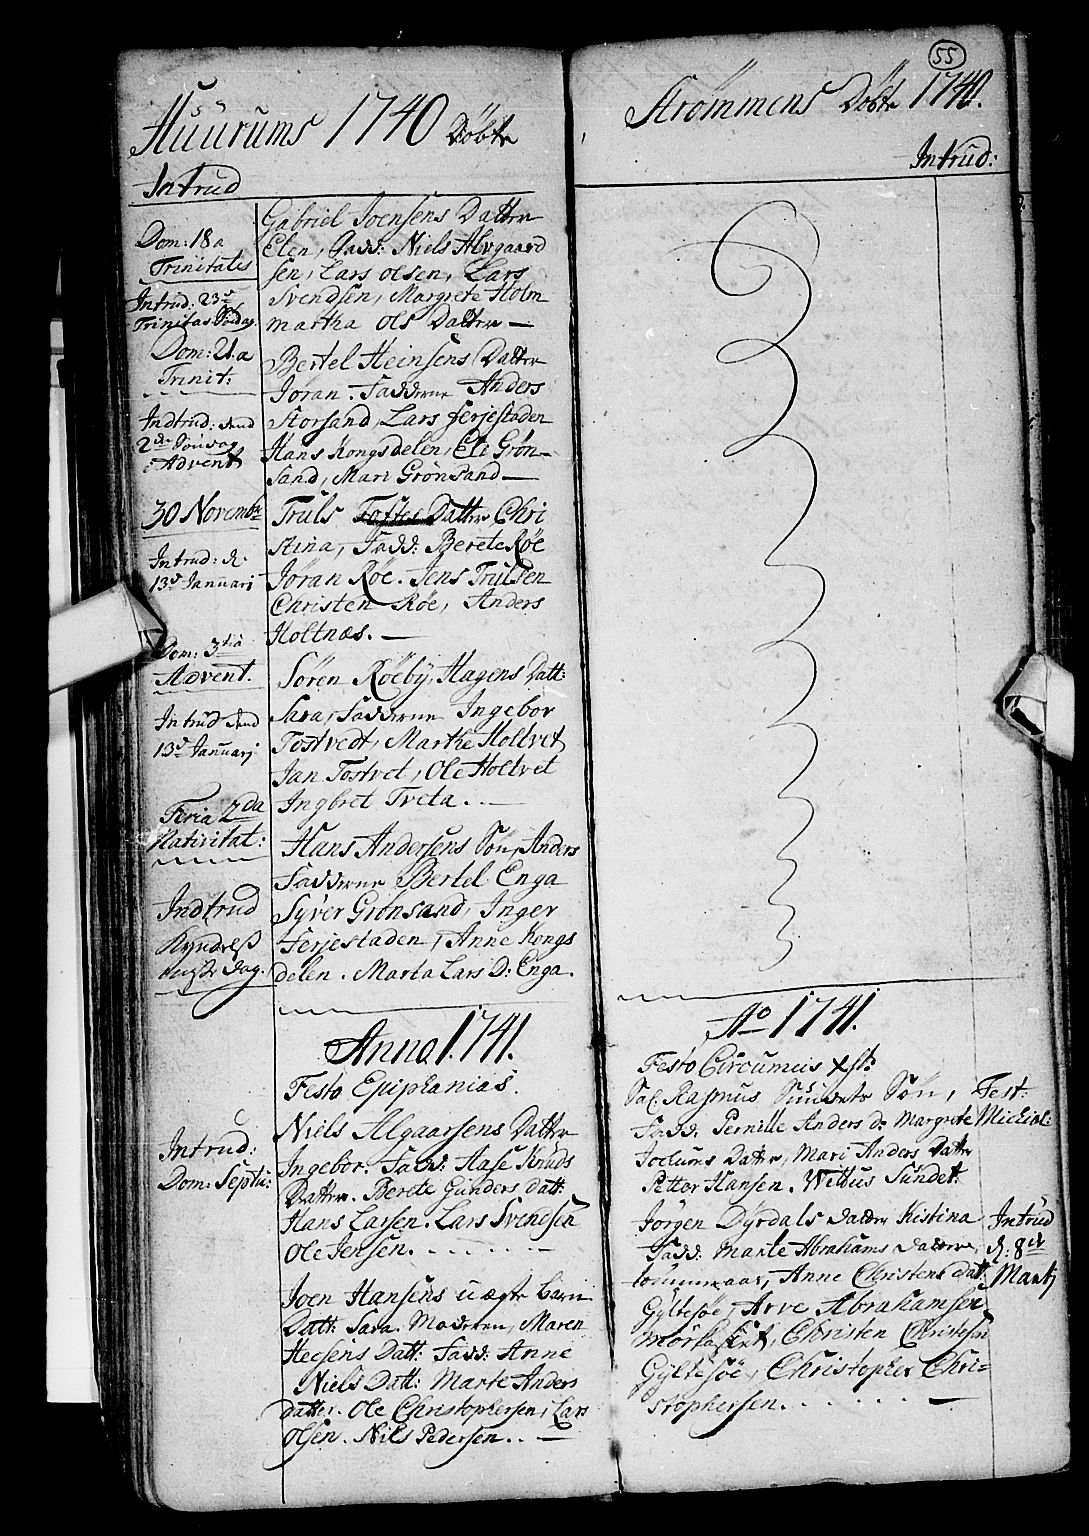 Huurums 1740 Døbte
Intrud
Dom: 18a
Trinitatis
Intrud: 23de
Trinitas Søndag
Gabriel Joensens Datter
Elen, Fadd: Niels Algaard
sen, Lars Olsen, Lars
Svendsen, Margrete Holm
martha Ols Datter —
Dom: 21.a
Trinit:
Indtrud: dend
2de Søndag
Advent
Bertel Heinsens Datter
Jøran. Fadderne Anders
Storsand, Lars ferjestaden
Hans Kongsdelen, Eli Grøn-
sand, Mari Grønsand —
30 Novembr
Intrud: d.
13de Januarj
Truls Datter Chri
stina, Fadd: Berete Røe
Jøran Røe. Jens Trulsen
Christen Røe, Anders
Holtnæs. —
Dom: 3tia
Advent.
Intrud dend
13de Januarj
Søren Røeby, Hagens Datt:
Sara, Fadderne Ingebor
Tostvedt, Marthe Holtvet
Jan Tostvet, Ole Holtvet
Ingbret Tveta. —
Feria 2da
Nativitat:
Indtrud
Kyndels
Dag.
Hans Andersens Søn, Anders
Fadderne Bertel Enga
Syver Grønsand, Inger
Ferjestaden, Anne Kongs
delen. Marta Lars D: Enga.
Anno 1741.
Festo Epiphanias.
Intrud:
Dom: Septu:
Niels Algaarsens Datter
Ingebor: Fadd: Aase Knuds
Datter. Berete Gunders datt:
Hans Larsen. Lars Svendsen
Ole Jensen. —
Joen Hansens uægte barn
Datt: Sara. Moderen, Maren
Heesens Datt: Fadd: Anne
Niels Datt: Marte Anders
datter. Ole Christophersen, Lars
Olsen. Nils Pedersen. —
55
Strømmens Døbte 1740.
Intrud:
Ao 1741.
Festo Circumcis xsti
Sal. Rasmus Sundets Søn,
Fadd. Pernille Anders d. Margrete
Jochums Datter, Mari Anders Datter
Petter Hansen. Sundet.
Fest:
Michael:
Jørgen Dyrdals datter Kistina
Fadd: Marte Abrahams datter,
Anne Christens dat:
Gyltesøe, Arve Abrahamsen
Christen Christesen
Gyltesøe, Christopher Chri-
stophersen. —
Intrud
d. 8de
Martj